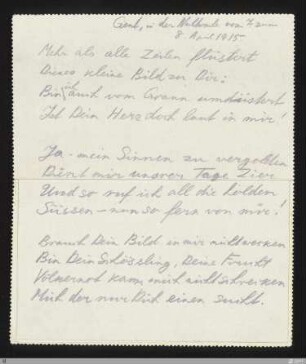 Gent, in der Nacht vom 7. zum
8. April 1915
Mehr als alle Zeilen flüstert
Dieses kleine Bild zu Dir:
Bin ich auch vom Graun umdüstert
Ist Dein Herz doch laut in mir!
Ja - mein Sinnen zu vergolden
Dient mir unsrer Tage Zier
Und so ruf ich all die holden
Süssen - nun so fern von mir!
Brauch Dein Bild in mir nicht wecken
Bin Dein Schössling, Deine Frucht
Volkernot kann mich nicht schrecken
Mich der nur Dich einen sucht.